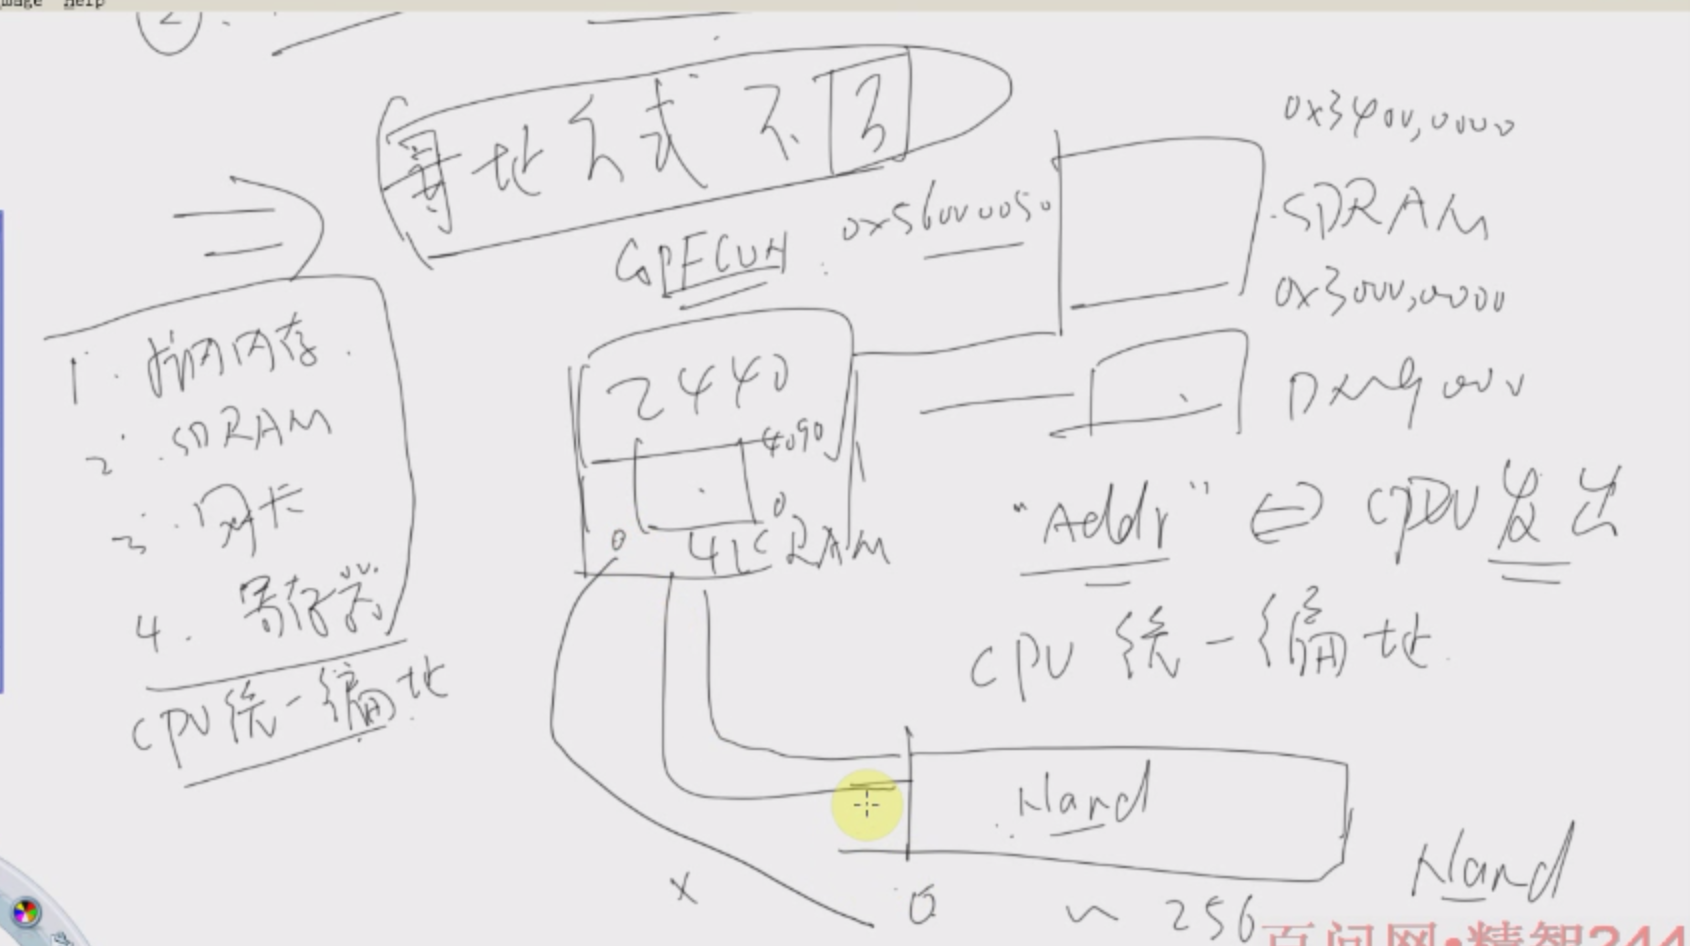 Help
2.
寻址方式不同
0x3400,0000
0x56000050
SDRAM
GPFCON
0x3000,0000
1. 片内内存
2440
2. SDRAM
4096
DM9000
3. 网卡
0
"Addr" ⇔ CPU发出
0
4K RAM
4. 寄存器
CPU统一编址
CPU统一编址
Nand
Nand
x
0 ~ 256
百问网•精智244